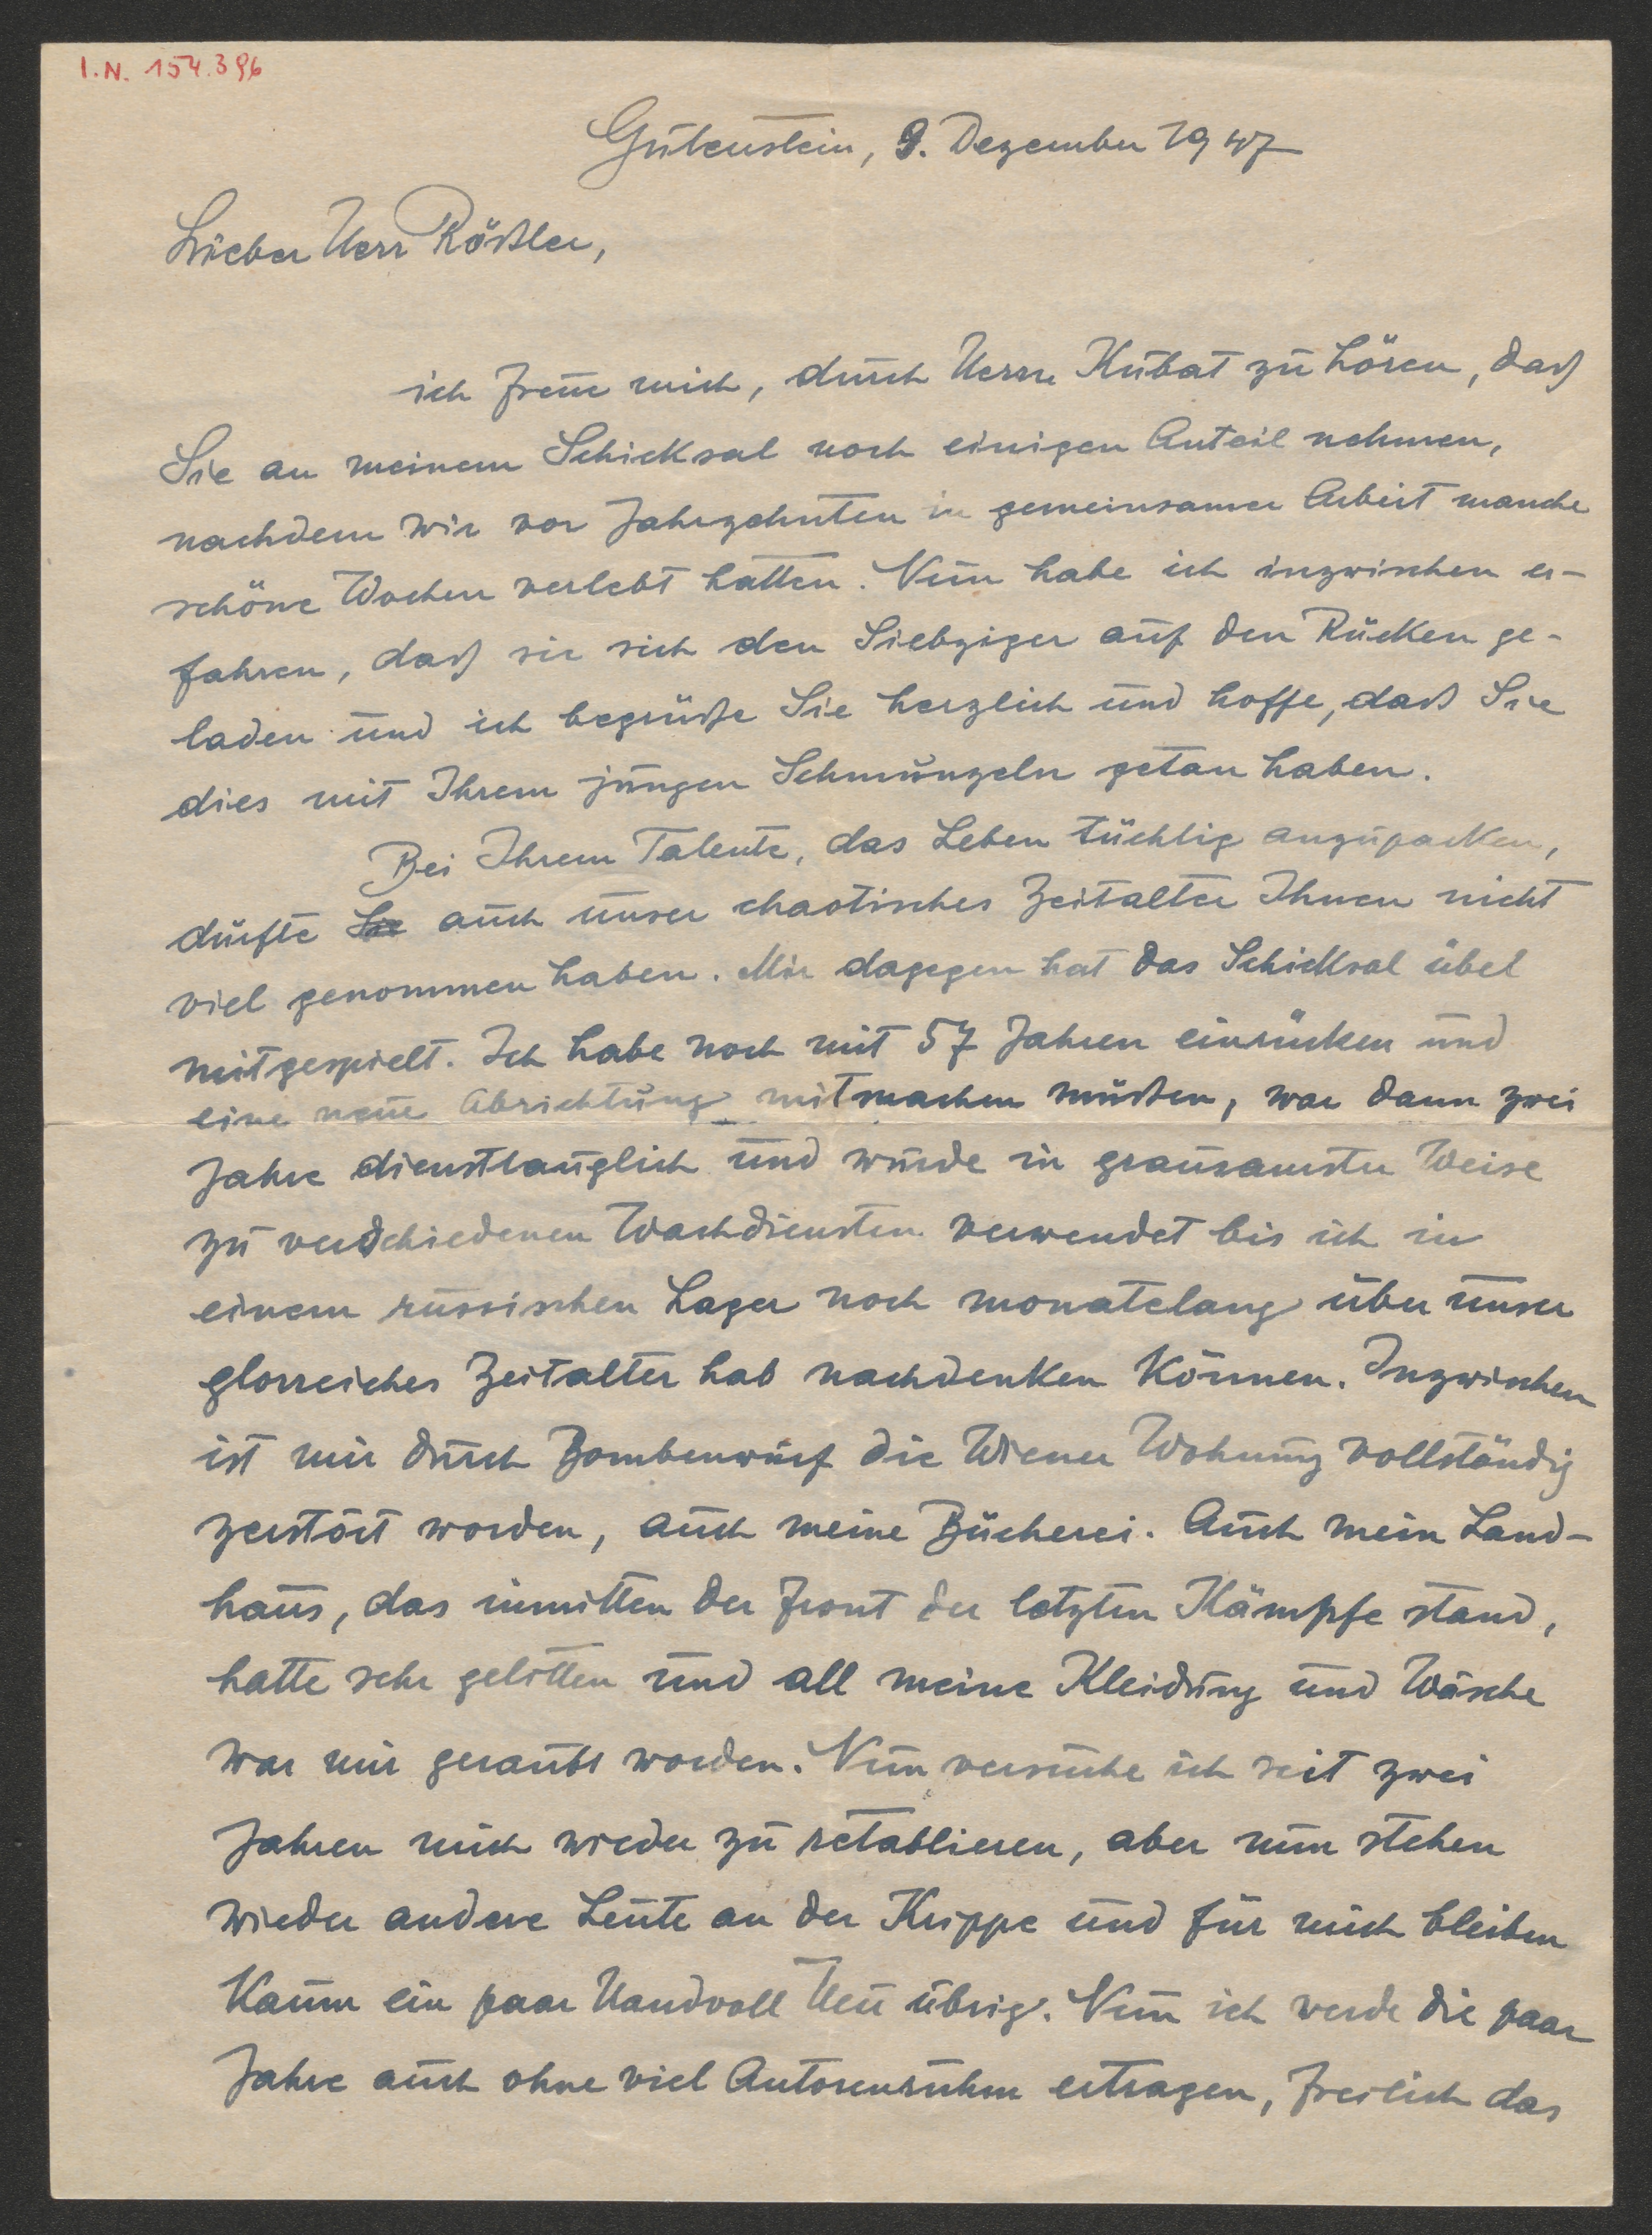 I.N. 154.396
Gutenstein, 9. Dezember 1947
Lieber Herr Rößler,
ich freue mich, durch Herrn Kubat zu hören, daß
Sie an meinem Schicksal noch einigen Anteil nehmen,
nachdem wir vor Jahrzehnten in gemeinsamer Arbeit manche
schöne Wochen verlebt hatten. Nun habe ich inzwischen er-
fahren, daß sie sich den Siebziger auf den Rücken ge-
laden und ich begrüße Sie herzlich und hoffe, daß Sie
dies mit Ihrem jungen Schmunzeln getan haben.
Bei Ihrem Talente, das Leben tüchtig anzupacken,
dürfte Sie auch unser chaotisches Zeitalter Ihnen nicht
viel genommen haben. Mir dagegen hat das Schicksal übel
mitgespielt. Ich habe noch mit 57 Jahren einrücken und
eine neue Abrichtung mitmachen müßen, war dann zwei
Jahre diensttauglich und wurde in grausamster Weise
zu verschiedenen Wachdiensten verwendet bis ich in
einem russischen Lager noch monatelang über unser
glorreiches Zeitalter hab nachdenken können. Inzwischen
ist mir durch Bombenwurf die Wiener Wohnung vollständig
zerstört worden, auch meine Bücherei. Auch mein Land-
haus, das inmitten der Front der letzten Kämpfe stand,
hatte sehr gelitten und all meine Kleidung und Wäsche
war mir geraubt worden. Nun versuche ich seit zwei
Jahren mich wieder zu retablieren, aber nun stehen
wieder andere Leute an der Krippe und für mich bleiben
kaum ein paar Handvoll Heu übrig. Nun ich werde die paar
Jahre auch ohne viel Autorenruhm ertragen, freilich das